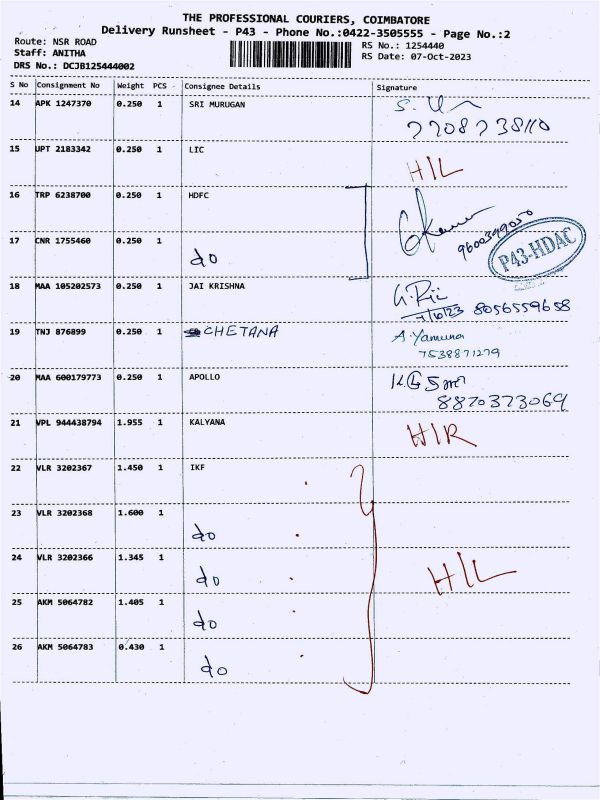 THE PROFESSIONAL COURIERS, COIMBATORE
Delivery Runsheet - P43 - Phone No.:0422-3505555 - Page No.:2
Route: NSR ROAD
Staff: ANITHA
DRS No.: DCJB125444002
RS No.: 1254440
RS Date: 07-Oct-2023
S No Consignment No Weight PCS Consignee Details Signature
14 APK 1247370 0.250 1 SRI MURUGAN
7708738110
15 UPT 2183342 0.250 1 LIC H/L
16 TRP 6238700 0.250 1 HDFC
9600399050
P43-HDAC
17 CNR 1755460 0.250 1 do
18 MAA 105202573 0.250 1 JAI KRISHNA
8056559658
19 TNJ 876899 0.250 1 CHETANA A. Yamuna
7538871279
20 MAA 600179773 0.250 1 APOLLO
8870373069
21 VPL 944438794 1.955 1 KALYANA H/R
22 VLR 3202367 1.450 1 IKF
23 VLR 3202368 1.600 1 do
24 VLR 3202366 1.345 1 do H/L
25 AKM 5064782 1.405 1 do
26 AKM 5064783 0.430 1 do